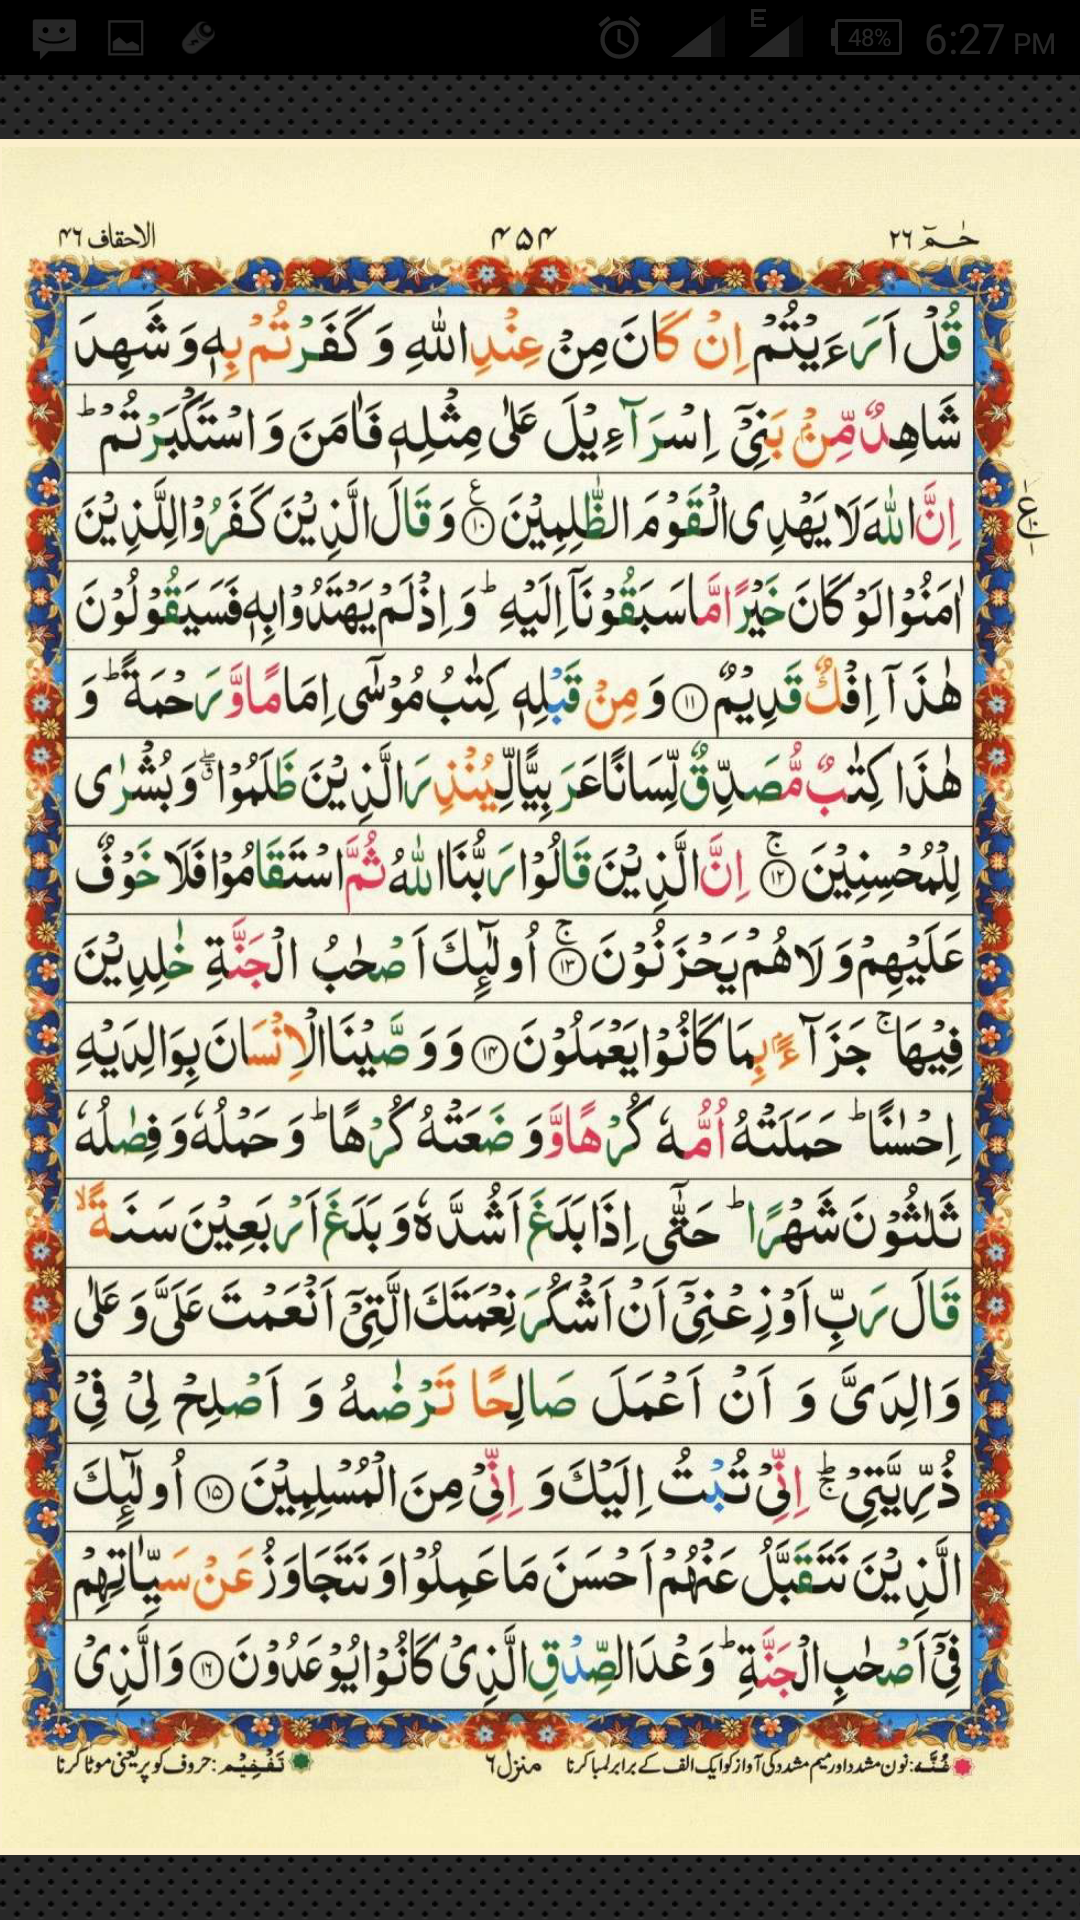 48%
E
6:27 PM
الاحقاف ۴۶
۴۵۴
حٰمٓ ۲۶
قُلْ اَرَءَيْتُمْ اِنْ كَانَ مِنْ عِنْدِ اللّٰهِ وَ كَفَرْتُمْ بِهٖ وَ شَهِدَ
شَاهِدٌ مِّنْۢ بَنِيْۤ اِسْرَآءِيْلَ عَلٰى مِثْلِهٖ فَاٰمَنَ وَ اسْتَكْبَرْتُمْ ؕ
اِنَّ اللّٰهَ لَا يَهْدِى الْقَوْمَ الظّٰلِمِيْنَ ۱۰ۧ وَ قَالَ الَّذِيْنَ كَفَرُوْا لِلَّذِيْنَ
اٰمَنُوْا لَوْ كَانَ خَيْرًا مَّا سَبَقُوْنَاۤ اِلَيْهِ ؕ وَ اِذْ لَمْ يَهْتَدُوْا بِهٖ فَسَيَقُوْلُوْنَ
هٰذَاۤ اِفْكٌ قَدِيْمٌ ۱۱ وَ مِنْ قَبْلِهٖ كِتٰبُ مُوْسٰۤى اِمَامًا وَّ رَحْمَةً ؕ وَ
هٰذَا كِتٰبٌ مُّصَدِّقٌ لِّسَانًا عَرَبِيًّا لِّيُنْذِرَ الَّذِيْنَ ظَلَمُوْا ۖۗ وَ بُشْرٰى
لِلْمُحْسِنِيْنَ ۱۲ۚ اِنَّ الَّذِيْنَ قَالُوْا رَبُّنَا اللّٰهُ ثُمَّ اسْتَقَامُوْا فَلَا خَوْفٌ
عَلَيْهِمْ وَ لَا هُمْ يَحْزَنُوْنَ ۱۳ۚ اُولٰٓئِكَ اَصْحٰبُ الْجَنَّةِ خٰلِدِيْنَ
فِيْهَا ۚ جَزَآءًۢ بِمَا كَانُوْا يَعْمَلُوْنَ ۱۴ وَ وَصَّيْنَا الْاِنْسَانَ بِوَالِدَيْهِ
اِحْسٰنًا ؕ حَمَلَتْهُ اُمُّهٗ كُرْهًا وَّ وَضَعَتْهُ كُرْهًا ؕ وَ حَمْلُهٗ وَ فِصٰلُهٗ
ثَلٰثُوْنَ شَهْرًا ؕ حَتّٰۤى اِذَا بَلَغَ اَشُدَّهٗ وَ بَلَغَ اَرْبَعِيْنَ سَنَةً ۙ
قَالَ رَبِّ اَوْزِعْنِيْۤ اَنْ اَشْكُرَ نِعْمَتَكَ الَّتِيْۤ اَنْعَمْتَ عَلَيَّ وَ عَلٰى
وَالِدَيَّ وَ اَنْ اَعْمَلَ صَالِحًا تَرْضٰىهُ وَ اَصْلِحْ لِيْ فِيْ
ذُرِّيَّتِيْ ؕۚ اِنِّيْ تُبْتُ اِلَيْكَ وَ اِنِّيْ مِنَ الْمُسْلِمِيْنَ ۱۵ اُولٰٓئِكَ
الَّذِيْنَ نَتَقَبَّلُ عَنْهُمْ اَحْسَنَ مَا عَمِلُوْا وَ نَتَجَاوَزُ عَنْ سَيِّاٰتِهِمْ
فِيْۤ اَصْحٰبِ الْجَنَّةِ ؕ وَعْدَ الصِّدْقِ الَّذِيْ كَانُوْا يُوْعَدُوْنَ ۱۶ وَ الَّذِيْ
غُنَّه: نون مشدد اور میم مشدد کی آواز کو ایک الف کے برابر لمبا کرنا
منزل ۶
تَفْخِیْم: حروف کو پُر یعنی موٹا کرنا